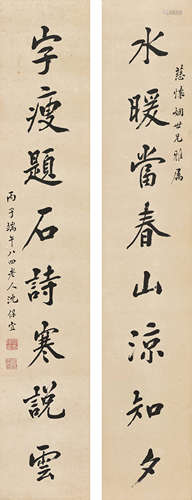 慈懷姻世兄雅屬
水暖當春山涼知夕
字瘦題石詩寒說雲
丙子端午八四老人沈保宜